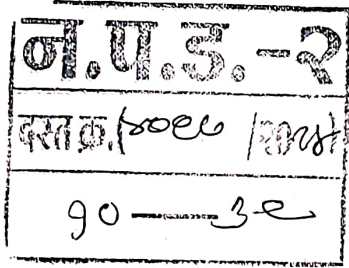 न.प.ड.-२
दस्त क्र.(४०९७ /२०२४)
१० — ३९